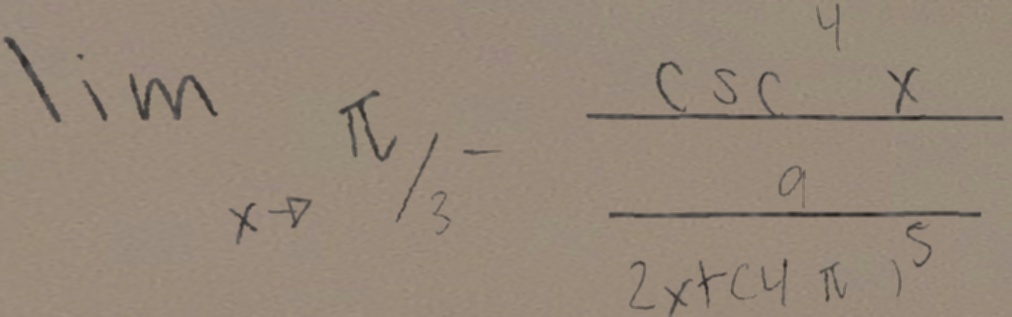 lim x→ π/3⁻ csc⁴ x
9
2x+(4π)⁵